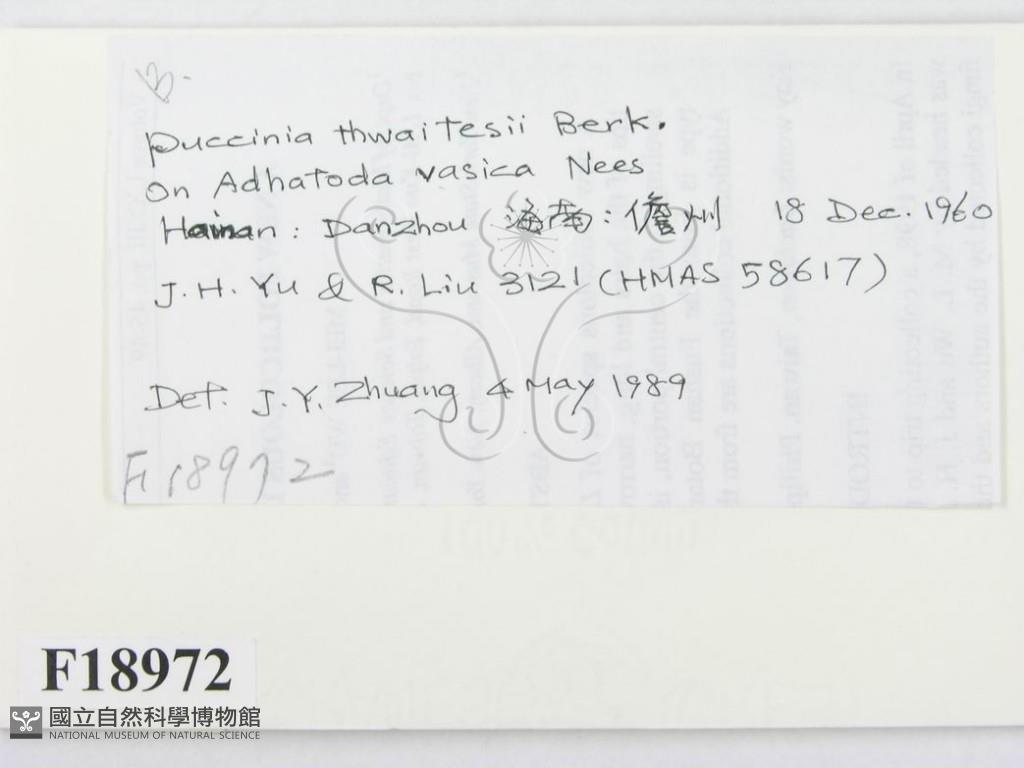 Puccinia thwaitesii Berk.
On Adhatoda vasica Nees
Hainan: Danzhou 海南: 儋州 18 Dec. 1960
J.H. Yu & R. Liu 3121 (HMAS 58617)
Det. J.Y. Zhuang 4 May 1989
F18972
F18972
國立自然科學博物館
NATIONAL MUSEUM OF NATURAL SCIENCE